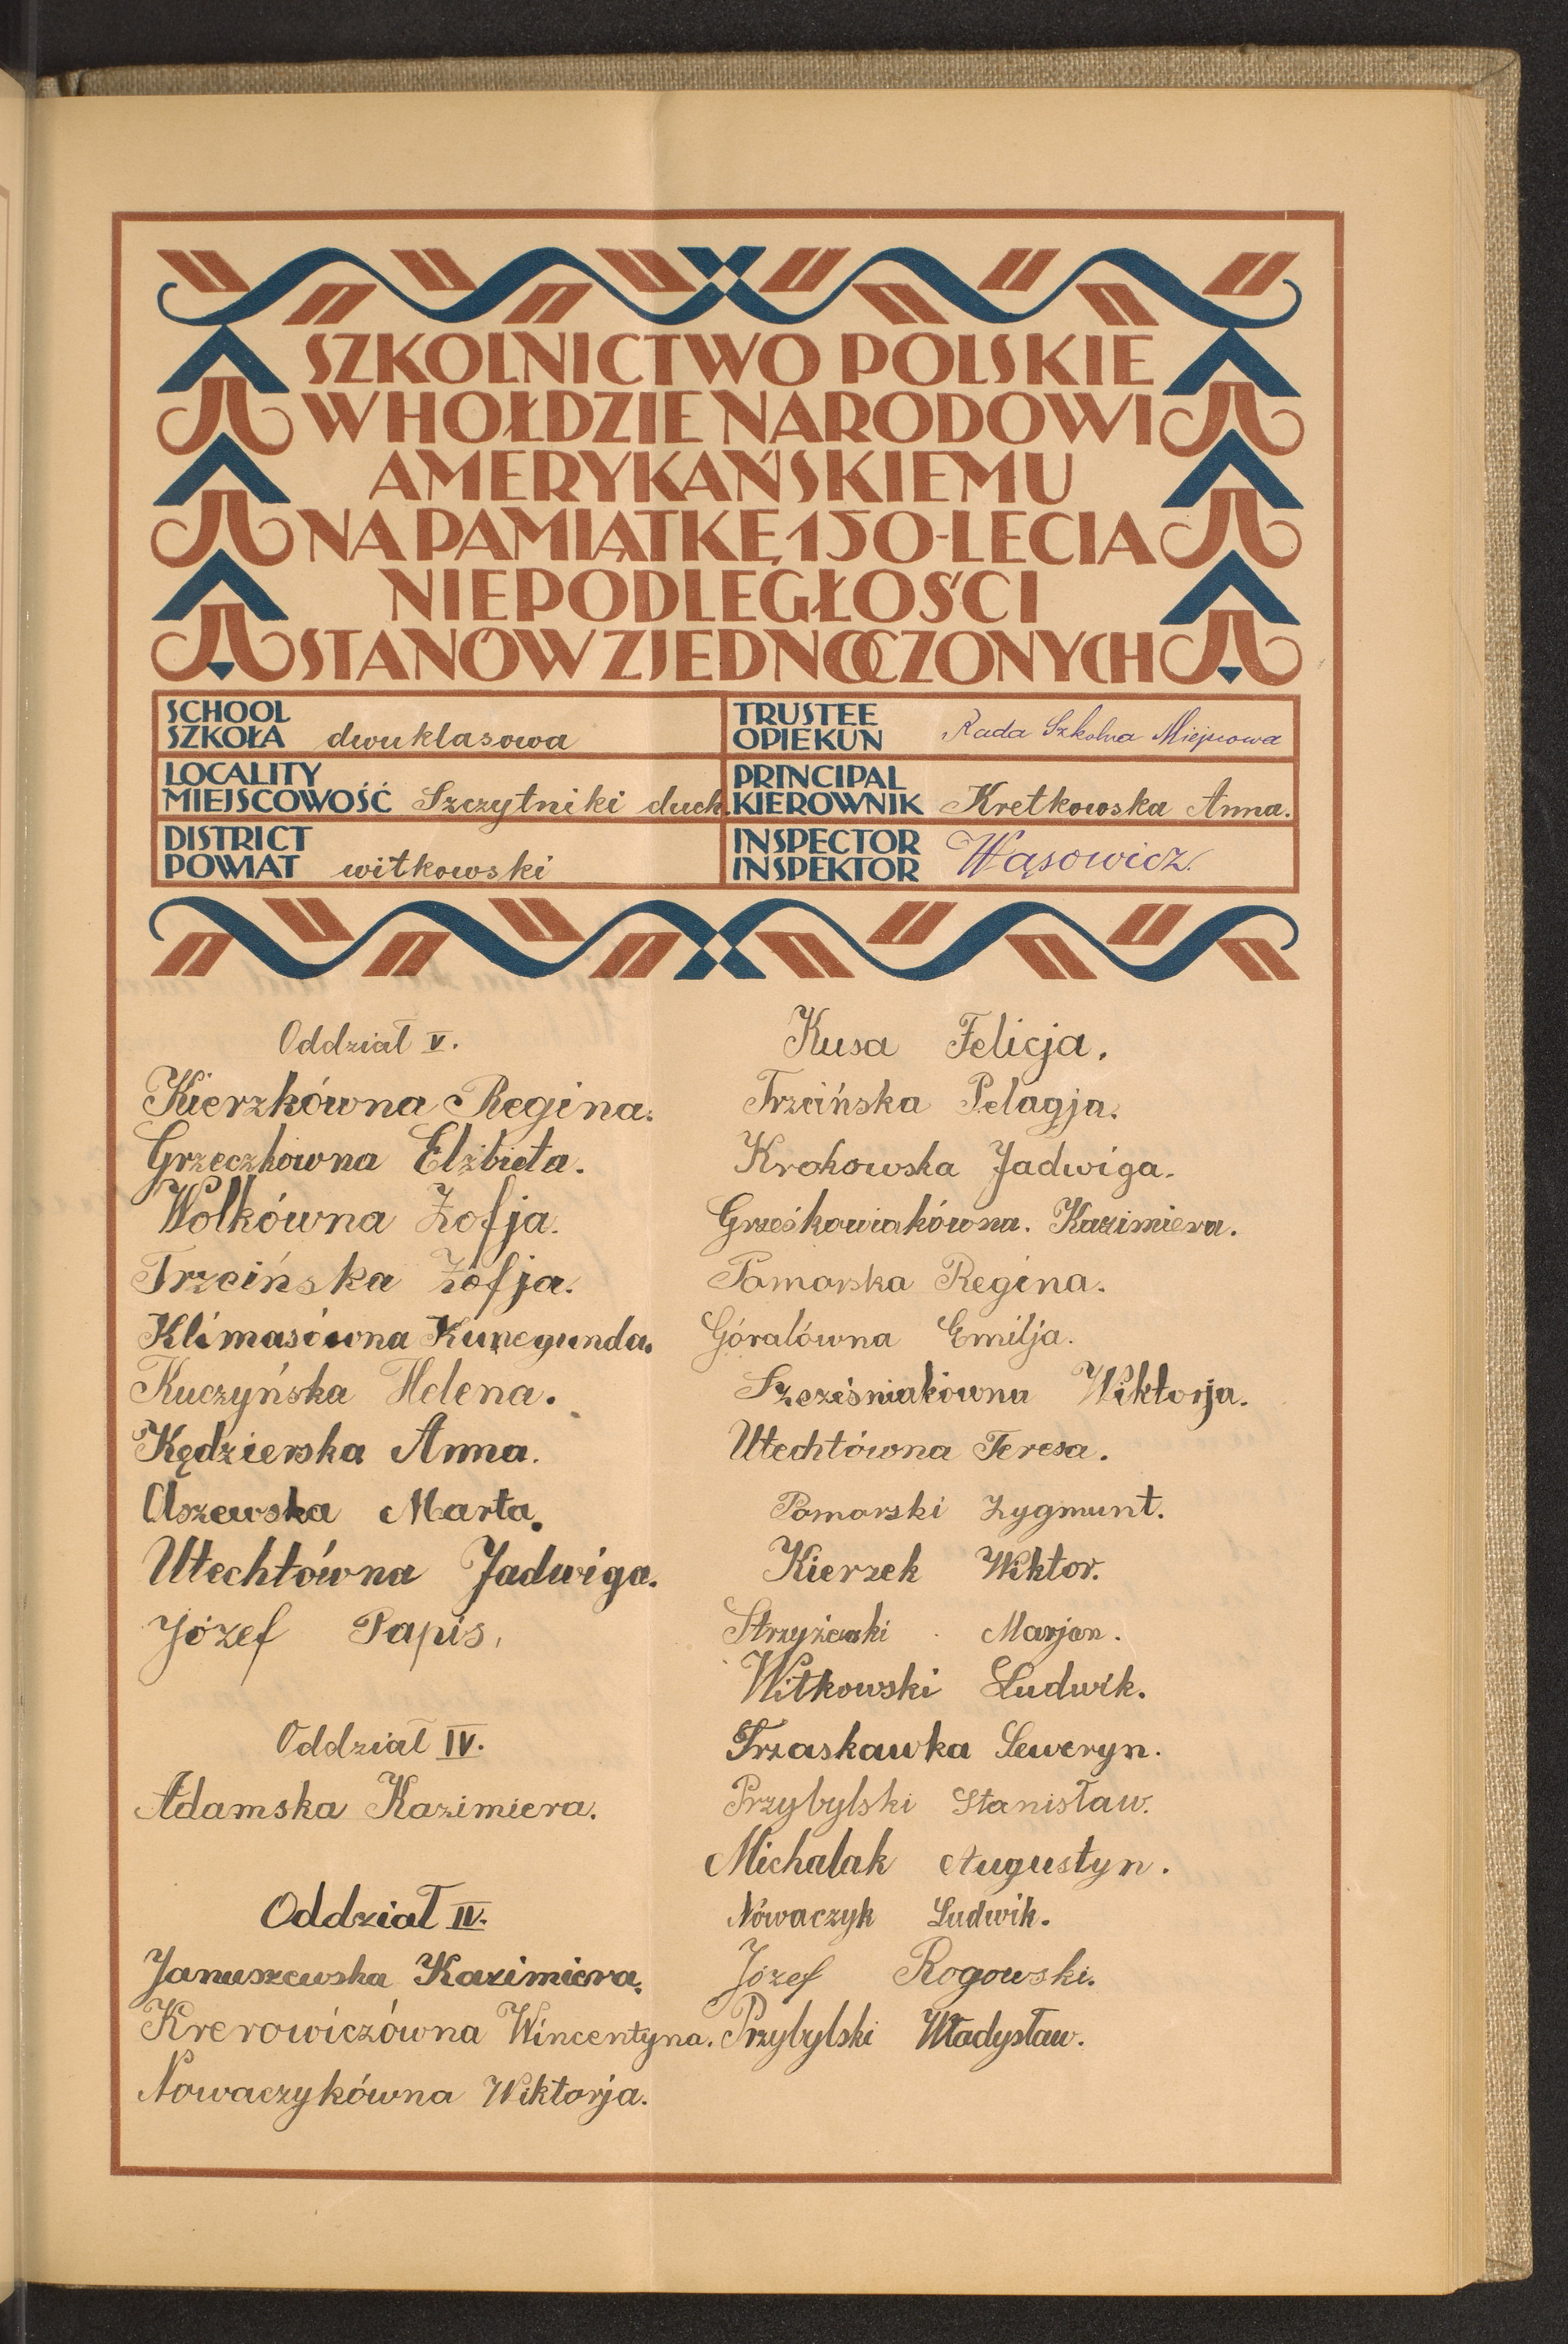 SZKOLNICTWO POLSKIE
W HOŁDZIE NARODOWI
AMERYKAŃSKIEMU
NA PAMIĄTKĘ 150-LECIA
NIEPODLEGŁOŚCI
STANÓW ZJEDNOCZONYCH
SCHOOL
SZKOŁA dwuklasowa
TRUSTEE
OPIEKUN Rada Szkolna Miejscowa
LOCALITY
MIEJSCOWOŚĆ Szczytniki duch.
PRINCIPAL
KIEROWNIK Kretkowska Anna.
DISTRICT
POWIAT witkowski
INSPECTOR
INSPEKTOR Wąsowicz
Oddział V.
Kierzkówna Regina.
Grzeczkówna Elżbieta.
Wolkówna Zofja.
Trzcińska Zofja.
Klimasówna Kunegunda.
Kuczyńska Helena.
Kędzierska Anna.
Olszewska Marta.
Utechtówna Jadwiga.
Józef Papis.
Oddział IV.
Adamska Kazimiera.
Oddział IV.
Januszewska Kazimiera.
Krerowiczówna Wincentyna.
Nowaczykówna Wiktorja.
Kusa Felicja.
Trzcińska Pelagja.
Krokowska Jadwiga.
Grześkowiakówna. Kazimiera.
Pomorska Regina.
Góralówna Emilja.
Szcześniakówna Wiktorja.
Utechtówna Teresa.
Pomorski Zygmunt.
Kierzek Wiktor.
Strzyżewski Marjan.
Witkowski Ludwik.
Trzaskawka Seweryn.
Przybylski Stanisław.
Michalak Augustyn.
Nówaczyk Ludwik.
Józef Rogowski.
Przybylski Władysław.